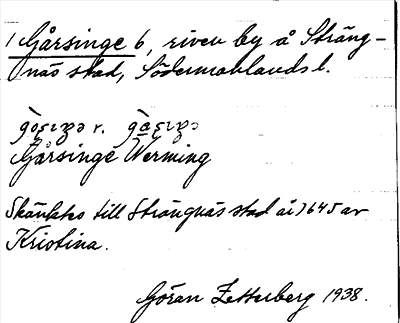 1 Gårsinge 6, riven by å Sträng-
näs stad, Södermanlands l.
Gårsinge Werming
Skänktes till Strängnäs stad år 1645 av
Kristina.
Göran Zetterberg 1938.